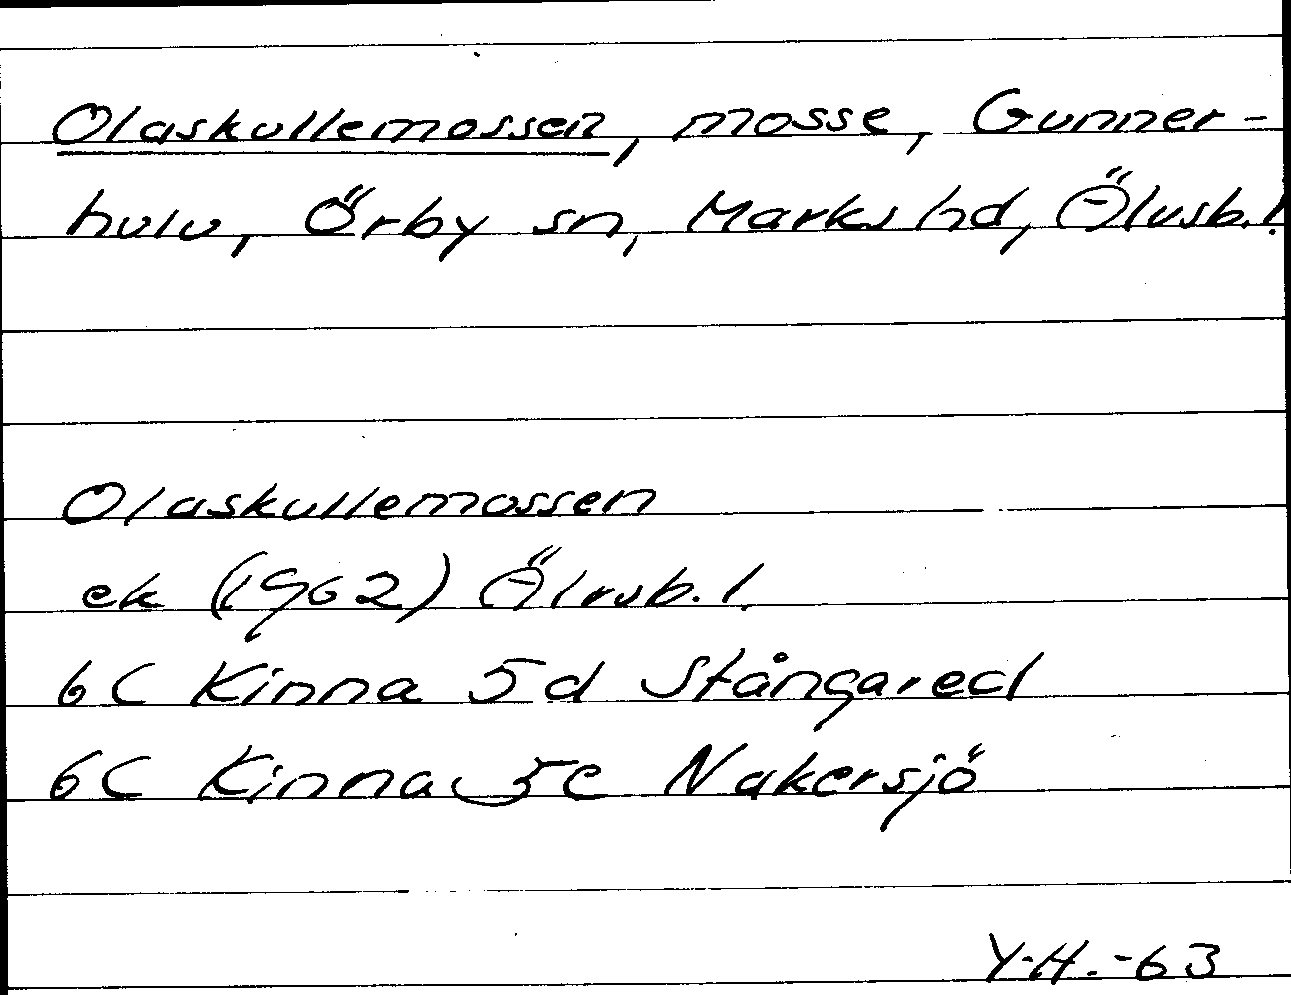 Olaskullemossen, mosse, Gunner-
hulu, Örby sn, Marks hd, Älvsb.l.
Olaskullemossen
ek (1962) Älvsb.l.
6C Kinna 5d Stångared
6C Kinna 5e Nakersjö
Y.H.-63